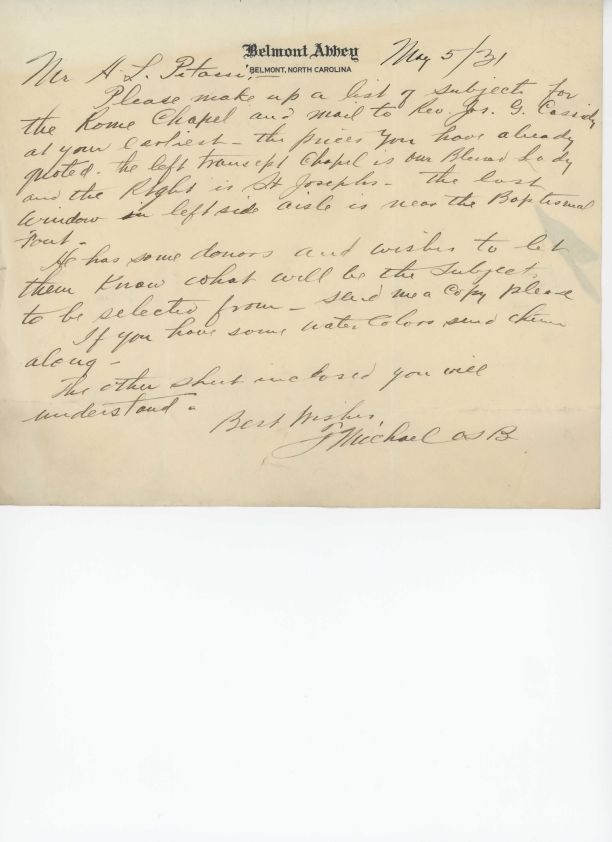 Belmont Abbey
BELMONT, NORTH CAROLINA
May 5/31
Mr H L. Pitassi,
Please make up a list of subjects for
the Rome Chapel and mail to Rev Jos. G. Cassidy
at your earliest - the prices you have already
quoted. the left transept Chapel is our Blessed Lady
and the Right is St Josephs - the last
window in left side aisle is near the Baptismal
Font -
He has some donors and wishes to let
them Know what will be the subjects
to be selected from - send me a copy please
If you have some water Colors send them
along -
The other sheet inclosed you will
understand -
Best Wishes,
F Michael OSB